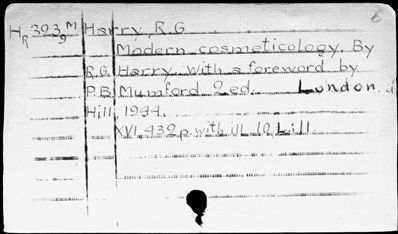 6
HR 393 M9 Harry, R.G.
Modern cosmeticology. By
R.G. Harry. With a foreword by
P.B. Mumford 2 ed. London.
Hill, 1944.
XVI, 432 p. with ill. 10 L. ill.